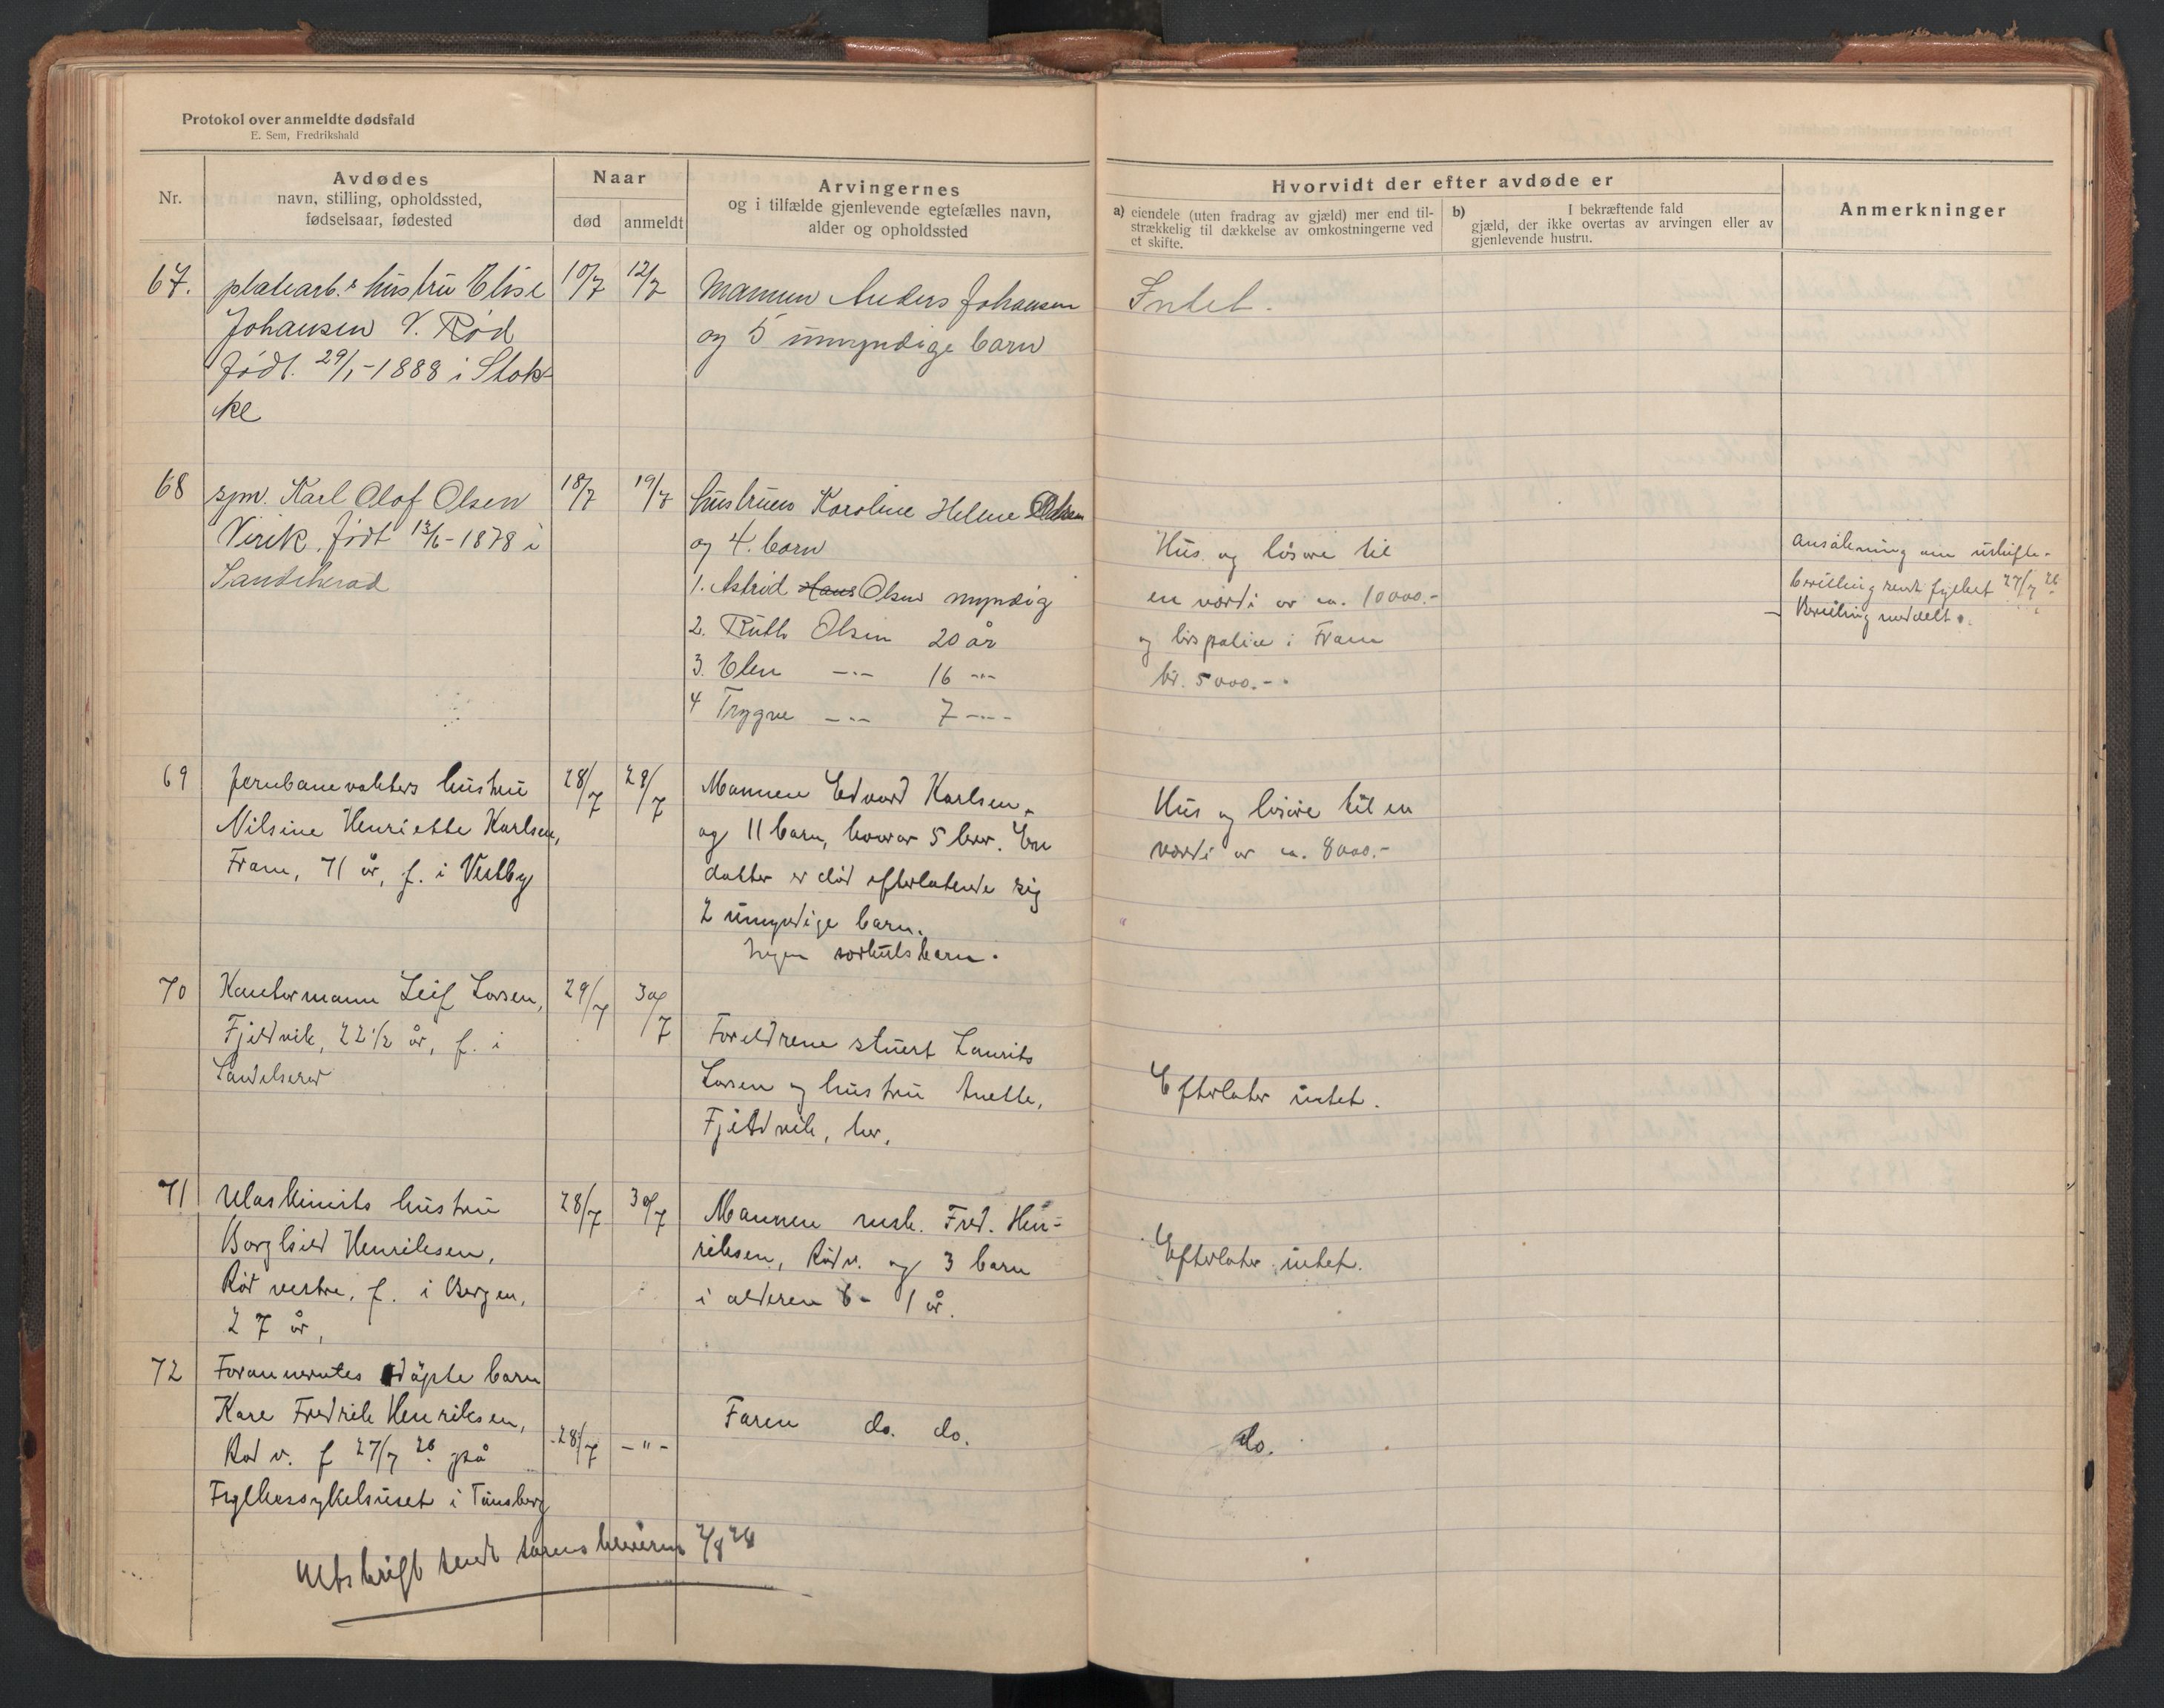 Protokol over anmeldte dødsfald
E. Sem, Fredrikshald
Nr.
Avdødes
navn, stilling, opholdssted,
fødselsaar, fødested
Naar
død
anmeldt
Arvingernes
og i tilfælde gjenlevende egtefælles navn,
alder og opholdssted
Hvorvidt der efter avdøde er
a) eiendele (uten fradrag av gjæld) mer end til-
strækkelig til dækkelse av omkostningerne ved
et skifte.
b) I bekræftende fald
gjæld, der ikke overtas av arvingen eller av
gjenlevende hustru.
Anmerkninger
67. platearb.s hustru Elise 10/7 12/7 Mannen Anders Johansen Intet.
Johansen V. Rød og 5 umyndige barn
født. 29/1-1888 i Stok-
ke
68 spm. Karl Olof Olsen 18/7 19/7 hustruen Karoline Helene Olsen
Virik. født 13/6-1878 i og 4. barn
Sandeherad
1. Astrid Hans Olsen myndig
2. Ruth Olsen 20 år
3. Elen -"- 16 -"-
4 Trygve -"- 7 -"-
Hus og løsøre til
en værdi av ca. 10000.-
og livspolice i Fram
kr. 5000.-.
Ansökning om uskifte-
bevilling sendt fylket 27/7 26
- Bevilling meddelt.
69 Jernbanevakters hustru 28/7 28/7 Mannen Edvard Karlsen
Nilsine Henriette Karlsen, og 11 barn, hvorav 5 lever. En
Fram, 71 år, f. i Vestby datter er död efterlatende sig
2 umyndige barn.
Ingen særkulsbarn.
Hus og løsöre til en
værdi av ca. 8000.-
70 Kontormann Leif Larsen, 29/7 30/7
Fjeldvik, 22 1/2 år, f. i
Sandeherad
Foreldrene stuert Laurits
Larsen og hustru Anette,
Fjeldvik, her.
Efterlater intet.
71 Maskinists hustru 28/7 30/7 Mannen mask. Fred. Hen-
Borghild Henriksen, riksen, Röd v. og 3 barn
Röd vestre, f. i Bergen, i alderen 6 - 1 år.
27 år,
Efterlater intet.
72 Forannevntes döpte barn
Kare Fredrik Henriksen, Faren do. do. do.
Röd v. f 27/7 26 på 28/7 -"-
Fylkessykehuset i Tönsberg
Utskrift sendt sorenskriveren 2/8 26